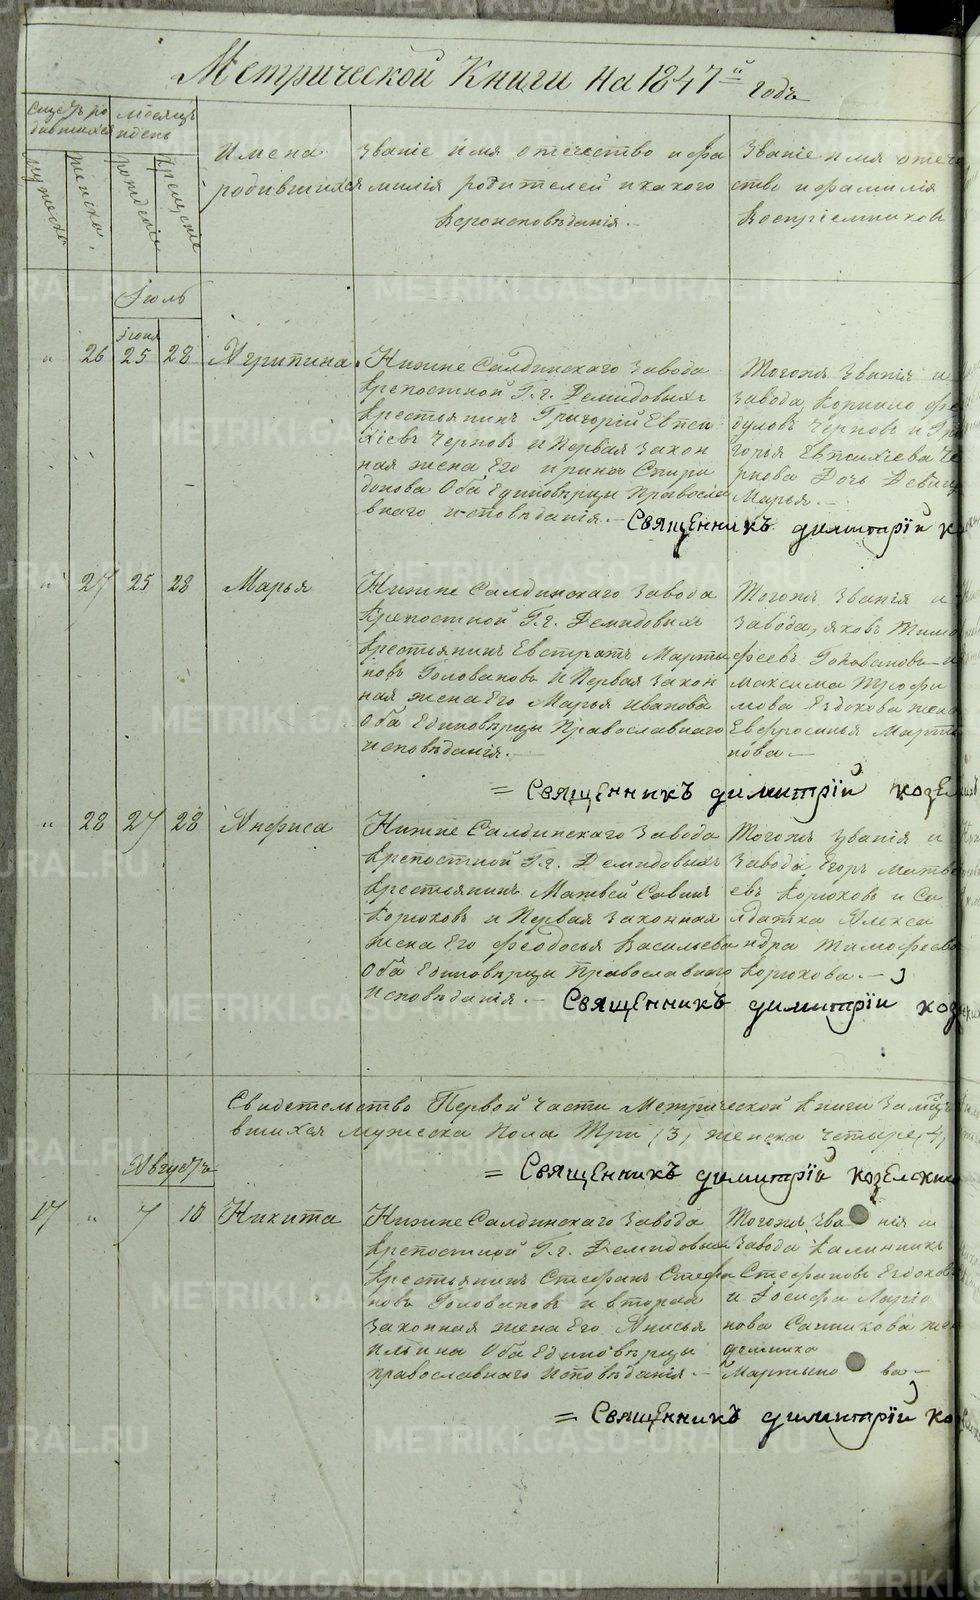 Метрической Книги на 1847й годъ
Счетъ ро
дившихся
Мѣсяцъ
и день
мужеска
женска.
рожденія
Крещенія
Имена
родившихся
Званіе имя отечество и фа
милія родителей и какого
Вероисповѣданія.
Званіе имя отече
ство и фамилія
Воспріемниковъ
Іюль
Іюня
" 26 25 28 Агрипина
Нижне Салдинскаго Завода
Крепостной Г. г. Демидовыхъ
Крестьянинъ Григорій Евпси
хіевъ Черновъ и Первая Закон
ная жена Его Ирина Спири
донова Оба Единовѣрцы Правосла
внаго исповѣданія. —
Тогожъ Званія и
завода, Корнило Фе
дуловъ Черновъ и Гри
горья Евпсихіева Че
рнова Дочь Девица
Марья. —
Священникъ Димитрій к
" 27 25 28 Марья
Нижне Салдинскаго Завода
Крепостной Г. г. Демидовыхъ
Крестьянинъ Евстратъ Марты
новъ Головановъ и Первая Закон
ная жена Его Марья Иванова
Оба Единовѣрцы Православнаго
исповѣданія. —
Тогожъ Званія и
Завода, Яковъ Тимо
феевъ Головановъ и
Максима Трофи
мова Евдокова жена
Евфросинья Марты
нова —
= Священникъ Димитрій козел
" 28 27 28 Анфиса
Нижне Салдинскаго Завода
Крепостной Г. г. Демидовыхъ
Крестьянинъ Матвей Савинъ
Корюковъ и Первая Законная
жена Его Феодосья Васильева
Оба Единовѣрцы Православнаго
Исповѣданія. —
Тогожъ Званія и
Завода, Егоръ Матве
евъ Корюковъ и Со
лдатка Алекса
ндра Тимофеева
Корюкова. —
Священникъ Димитрій коз
Свидетельство Первой Части Метрической Книги
вшихся Мужеска Пола Три (3) женска Четыре (4)
= Священникъ Димитрій козелски
Августъ
17 " 7 10 Никита
Нижне Салдинскаго Завода
Крепостной Г. г. Демидовыхъ
Крестьянинъ Стефанъ Стефа
новъ Головановъ и вторая
Законная жена Его Анисья
Ильина Оба Единовѣрцы
православнаго Исповѣданія. —
Тогожъ Званія и
Завода Калинникъ
Стефановъ Евдоков
и Іосифа Ларіо
нова Сачикова жен
Мартыно ва —
= Священникъ Димитрій ко
METRIKI.GASO-URAL.RU